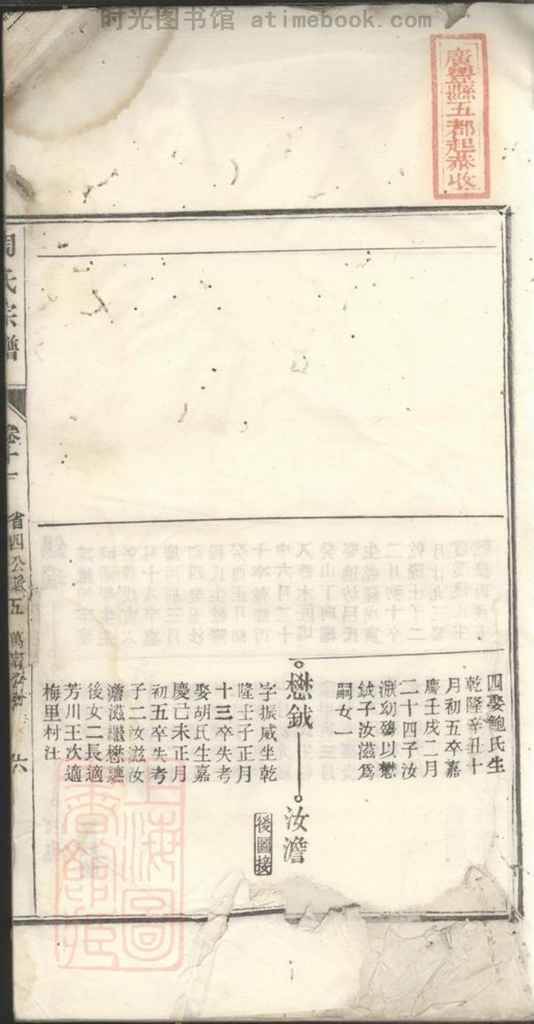 时光图书馆 atimebook.com
廣豐縣五都起恭收
四娶鮑氏生
乾隆辛丑十
月初五卒嘉
慶壬戌二月
二十四子汝
淑幼殤以懋
鉞子汝滋爲
嗣女一
懋鉞
汝澹
後圖接
字振威坐乾
隆壬子正月
十三卒失考
娶胡氏生嘉
慶己未正月
初五卒失考
子二汝滋汝
澹滋繼懋
後女二長適
芳川王次適
梅里村汪
周氏宗譜
卷十一
省四公派五
六
上海圖書館藏